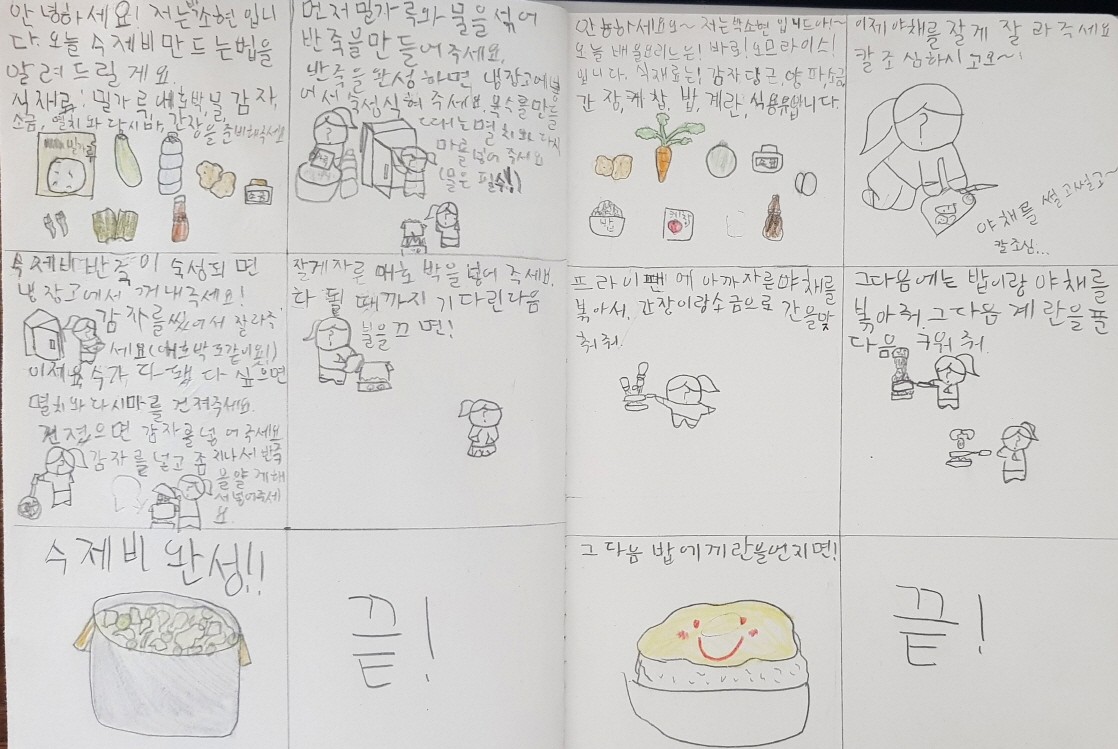 안녕하세요! 저는 박소현 입니
다. 오늘 수제비 만드는법을
알려드릴게요.
식재료: 밀가루, 애호박, 물, 감자,
소금, 멸치와 다시마, 간장을 준비해주세요
밀가루
소금
먼저 밀가루와 물을 섞어
반죽을 만들어 주세요.
반죽을 완성하면 냉장고에 넣
어서, 숙성식혀 주세요. 육수를 만들
때는 멸치와 다시
마를 넣어 주세요
(물은 필수!)
수제비 반죽이 숙성되면
냉장고에서 꺼내주세요!
감자를 씼어서 잘라주
세요(애호박도 같이요!)
이제 육수가 다 됐다 싶으면
멸치와 다시마를 건져주세요.
건졌으면 감자를 넣어주세요
감자를 넣고 좀 지나서 반죽
을 얇게해
서 넣어주세
요.
잘게 자른 애호박을 넣어 주세요.
다 될 때까지 기다린다음
불을 끄면!
수제비 완성!!
끝!
안뇽하세요요~ 저는 박소현 입니드아!~
오늘 배울요리는! 바로! 오므라이스!
입니다. 식재료는! 감자, 당근, 양파, 소금,
간장, 케찹, 밥, 계란, 식용유입니다.
소금
밥
케찹
이제 야채를 잘게 잘라주세요
칼조심하시고요~!
야채를 썰고썰고~
칼조심...
프라이팬에 아까자른야채를
볶아서, 간장이랑소금으로 간을맞
춰줘.
그다음에는 밥이랑 야채를
볶아줘. 그다음 계란을 푼
다음 구워줘.
그다음 밥에 계란을 얹지면!
끝!